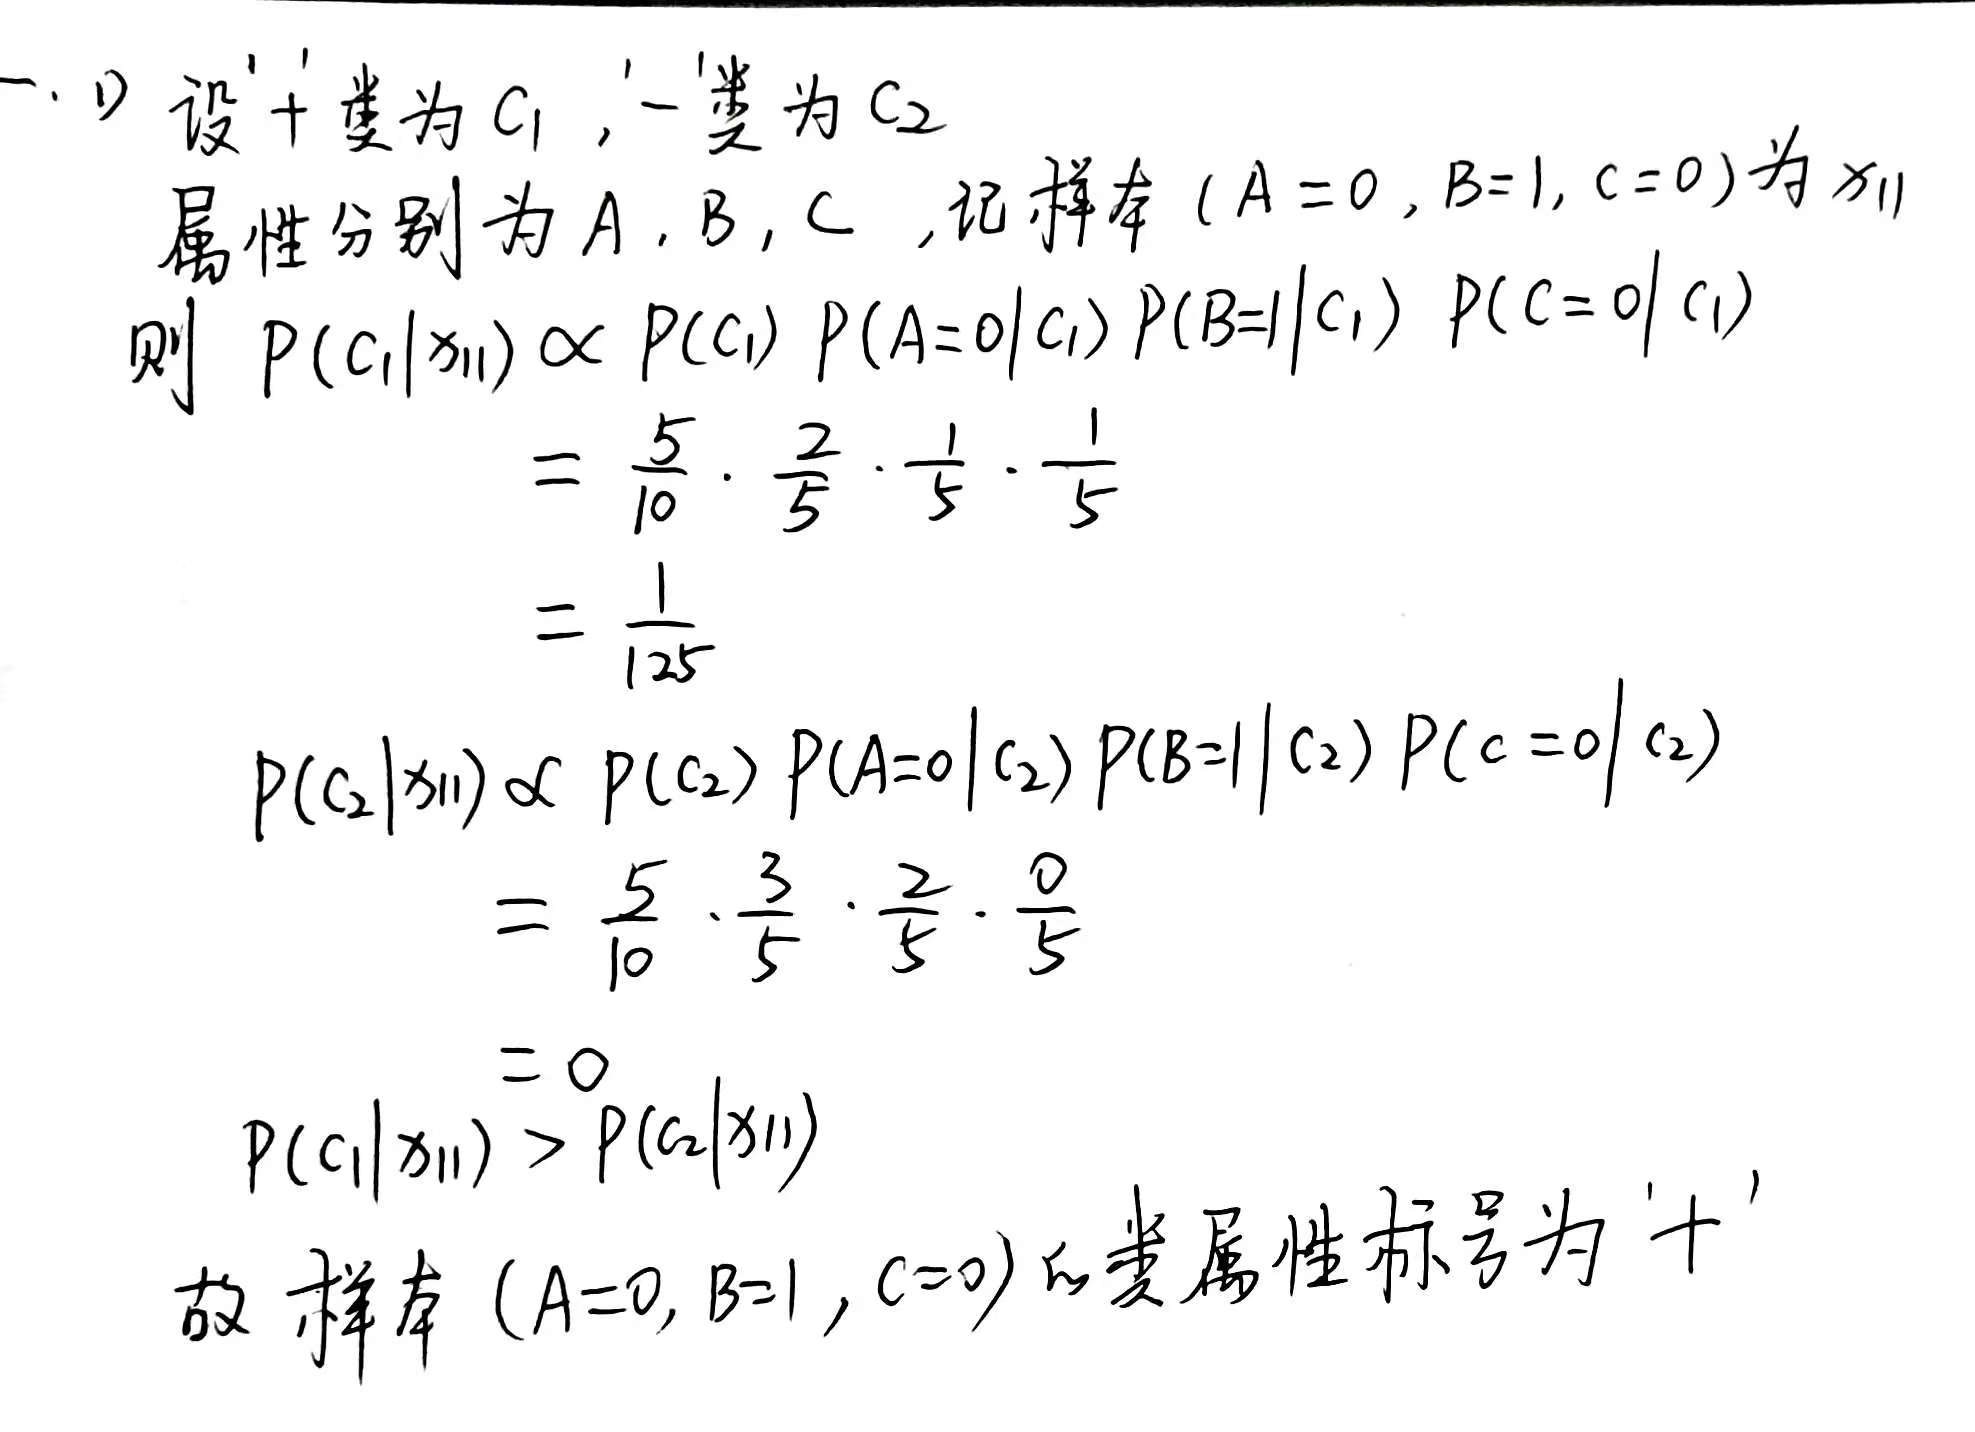 一. 1) 设'+'类为C₁, '-'类为C₂
属性分别为A, B, C, 记样本(A=0, B=1, C=0)为x₁₁
则 P(C₁|x₁₁) ∝ P(C₁) P(A=0|C₁) P(B=1|C₁) P(C=0|C₁)
= 5/10 · 2/5 · 1/5 · 1/5
= 1/125
P(C₂|x₁₁) ∝ P(C₂) P(A=0|C₂) P(B=1|C₂) P(C=0|C₂)
= 5/10 · 3/5 · 2/5 · 0/5
= 0
P(C₁|x₁₁) > P(C₂|x₁₁)
故样本(A=0, B=1, C=0)的类属性标号为'+'